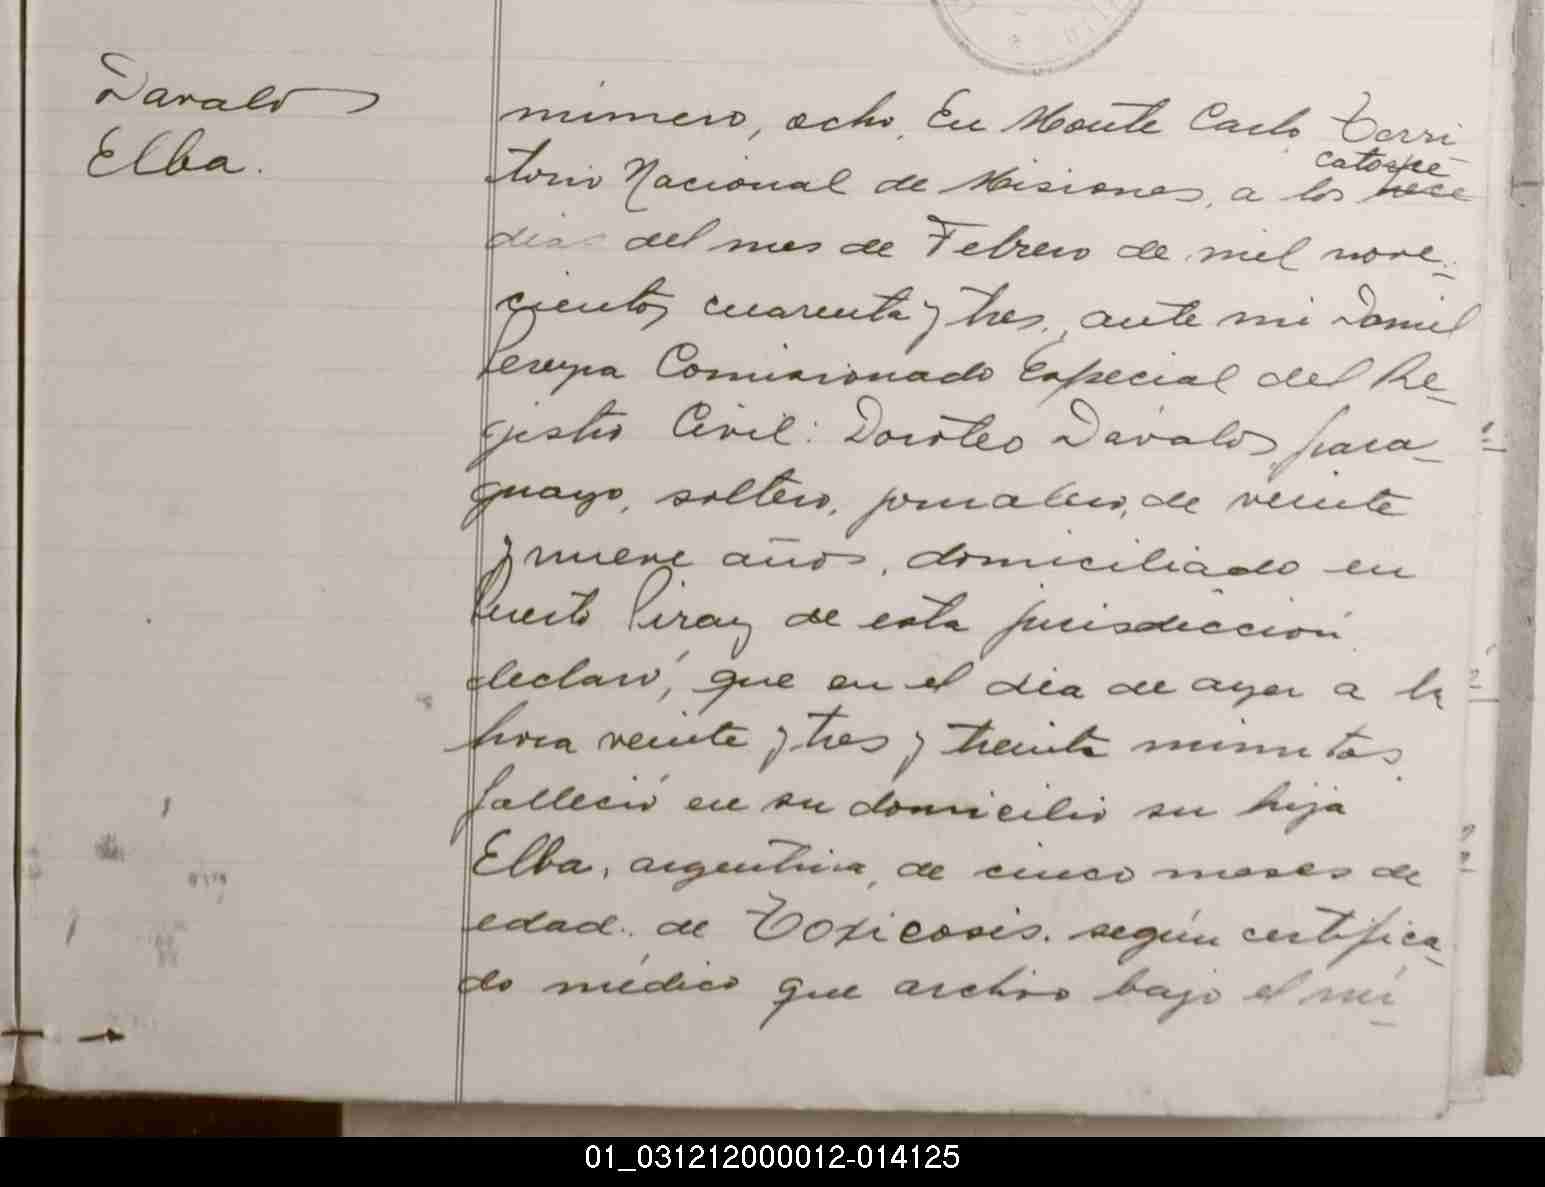 Davalos
Elba.
número, ocho. En Monte Carlo Terri
torio Nacional de Misiones, a los catorce
dias del mes de Febrero de mil nove-
cientos cuarenta y tres, ante mi Daniel
Pereyra Comisionado Especial del Re-
gistro Civil: Doroteo Dávalos para-
guayo, soltero, jornalero, de veinte
y nueve años, domiciliado en
Puerto Piray de esta jurisdicción
declaró, que en el dia de ayer a la
hora veinte y tres y treinta minutos
falleció en su domicilio su hija
Elba, argentina, de cinco meses de
edad. de Toxicosis. según certifica-
do médico que archivo bajo el nú-
01_031212000012-014125